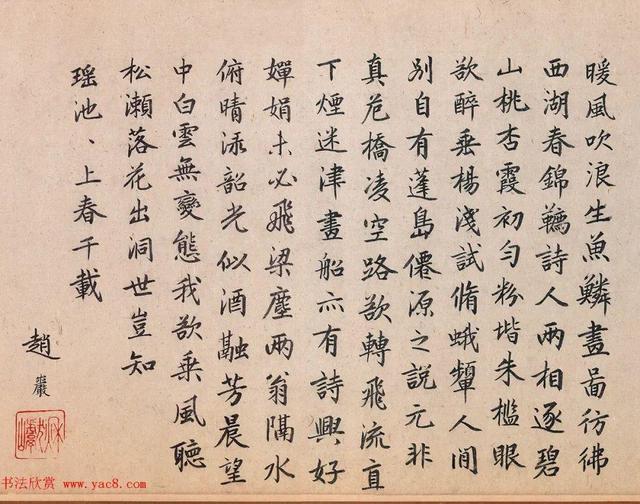 暖風吹浪生魚鱗畫啚彷彿
西湖春錦韉詩人兩相逐碧
山桃杏霞初勻粉堦朱檻眼
欲醉垂楊淺試脩蛾顰人間
別自有蓬島僊源之說元非
真危橋凌空路欲轉飛流直
下煙迷津畫船亦有詩興好
嬋娟未必飛梁塵兩翁隔水
俯晴渌韶光似酒融芳晨望
中白雲無變態我欲乘風聽
松瀨落花出洞世豈知
瑶池、上春千載
趙巖
书法欣赏 www.yac8.com